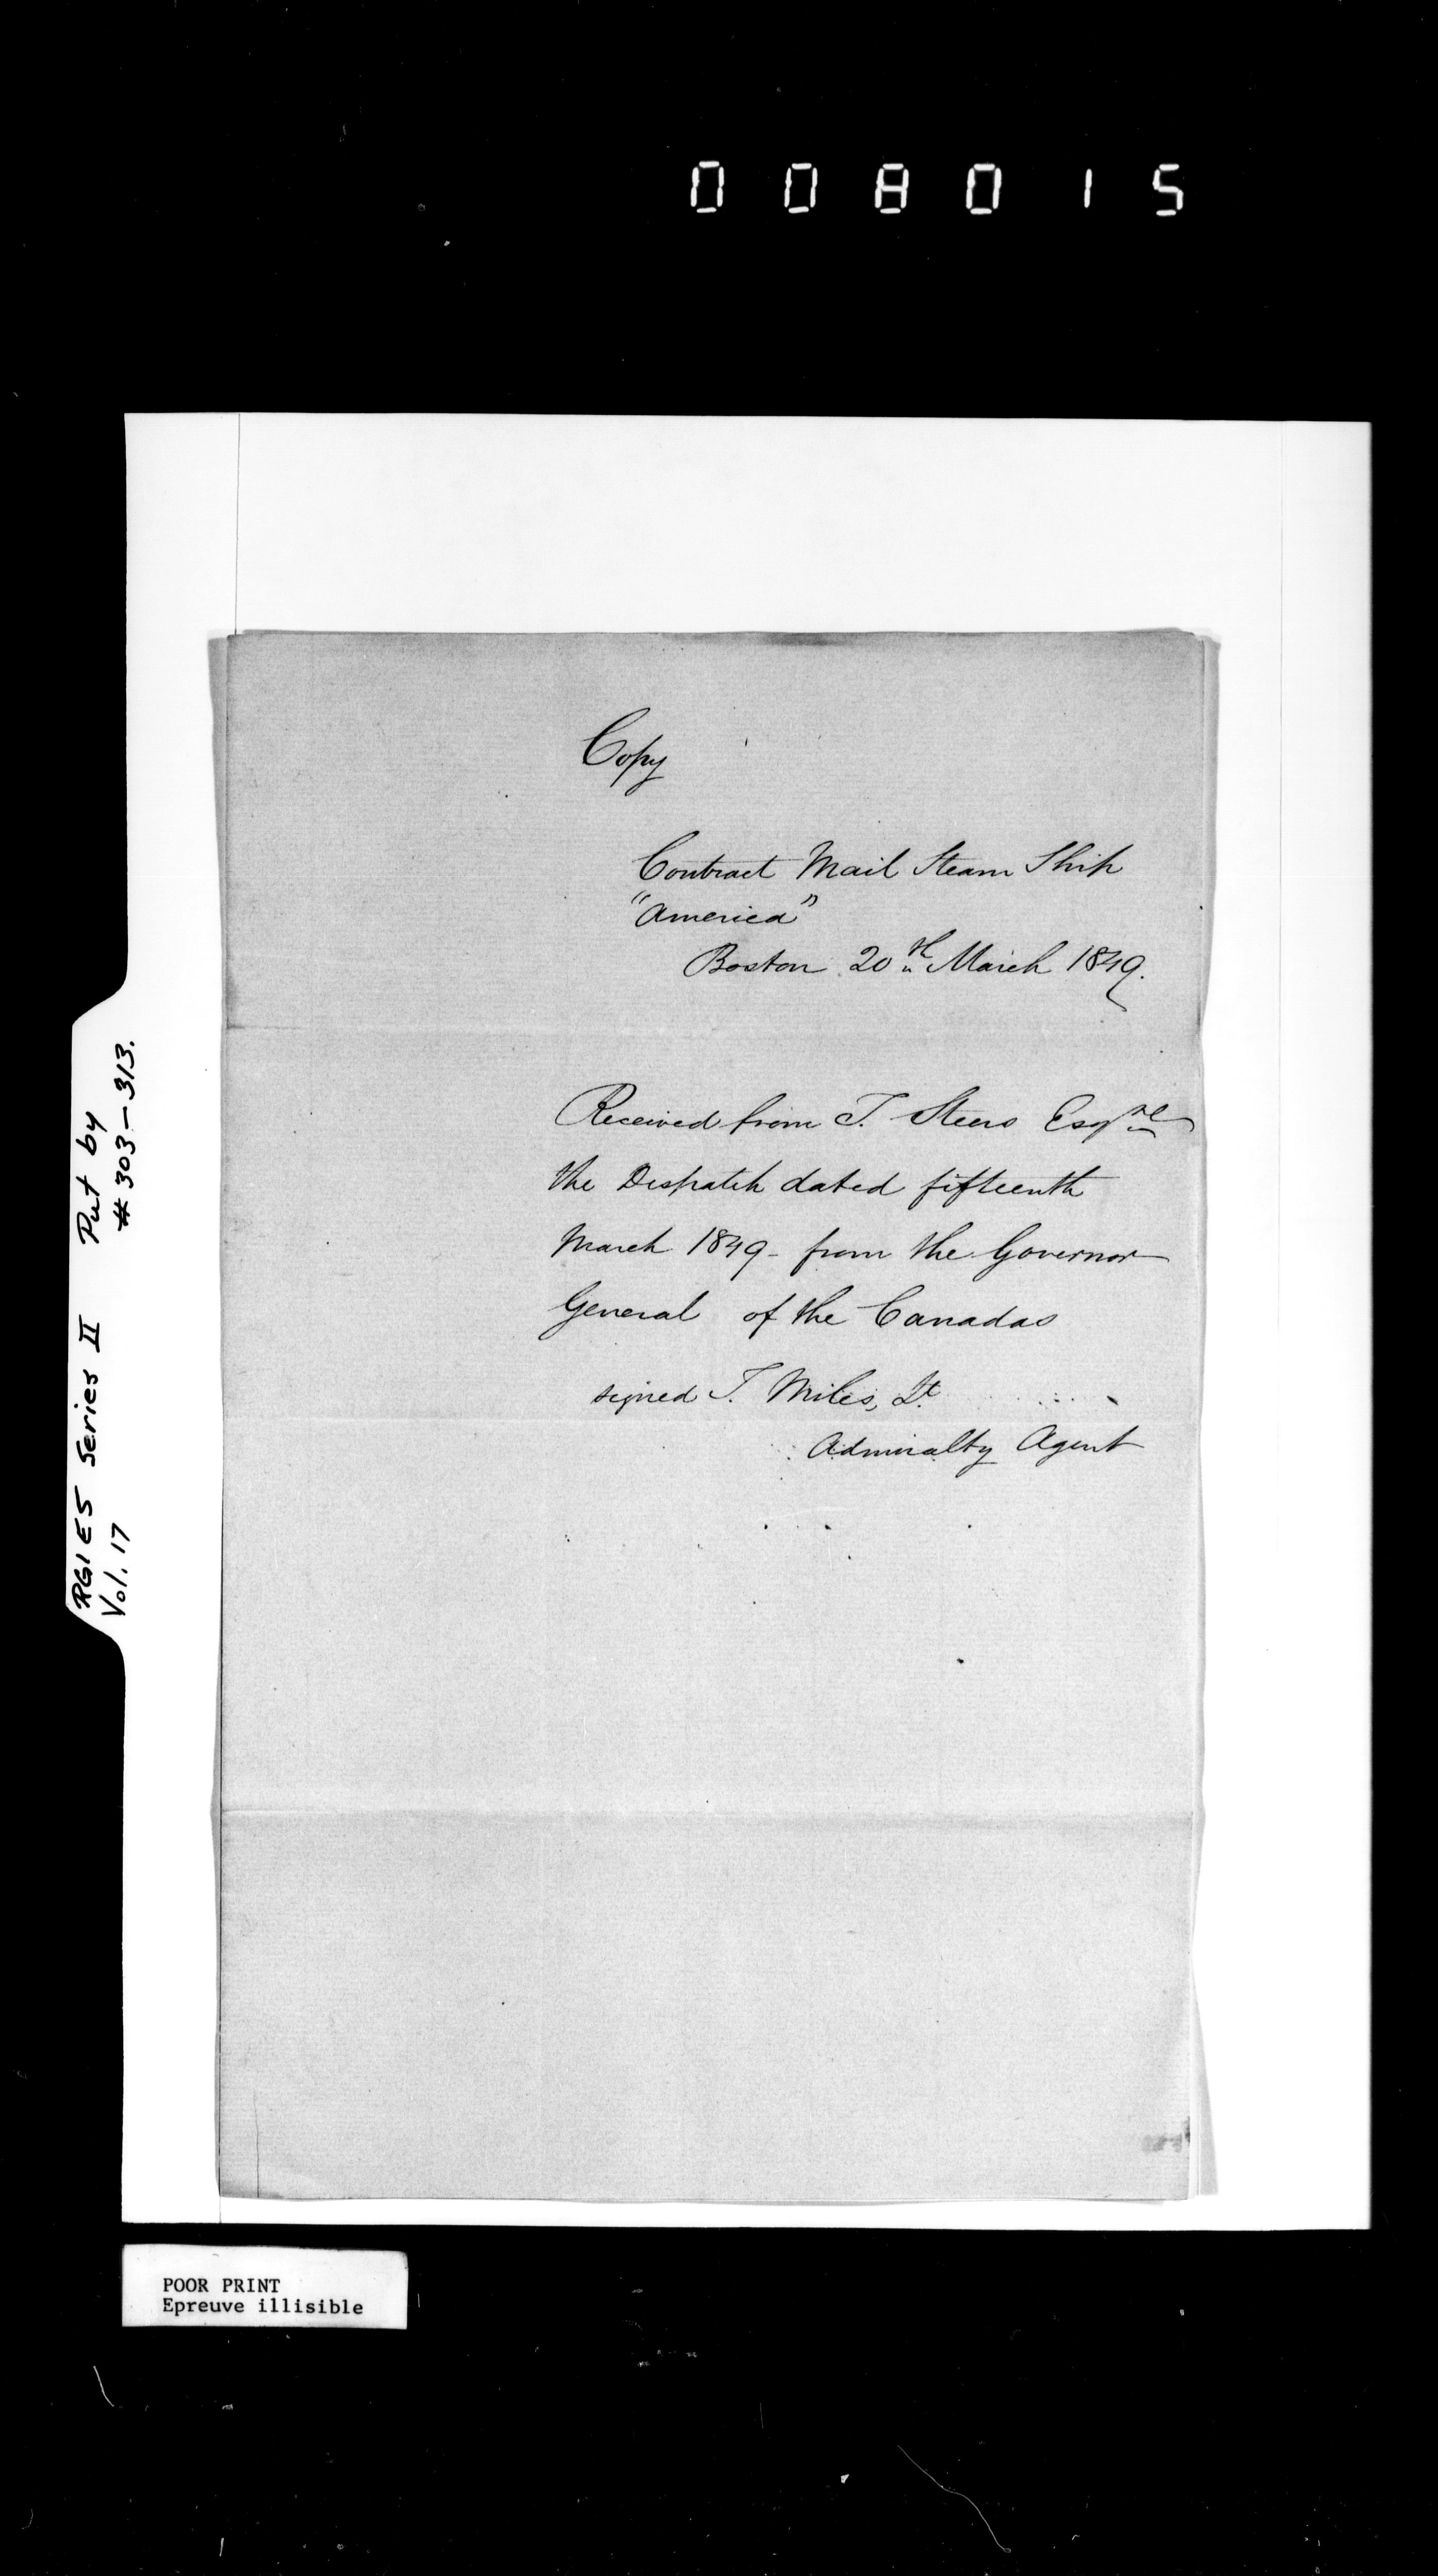 008015
RG1 E5 Series II Put by
Vol. 17 # 303-313.
Copy
Contract Mail Steam Ship
"America"
Boston 20th March 1849.
Received from T. Steers Esqre
the Dispatch dated fifteenth
March 1849 - from the Governor
General of the Canadas
signed T. Miles, Lt.
Admiralty Agent
POOR PRINT
Epreuve illisible